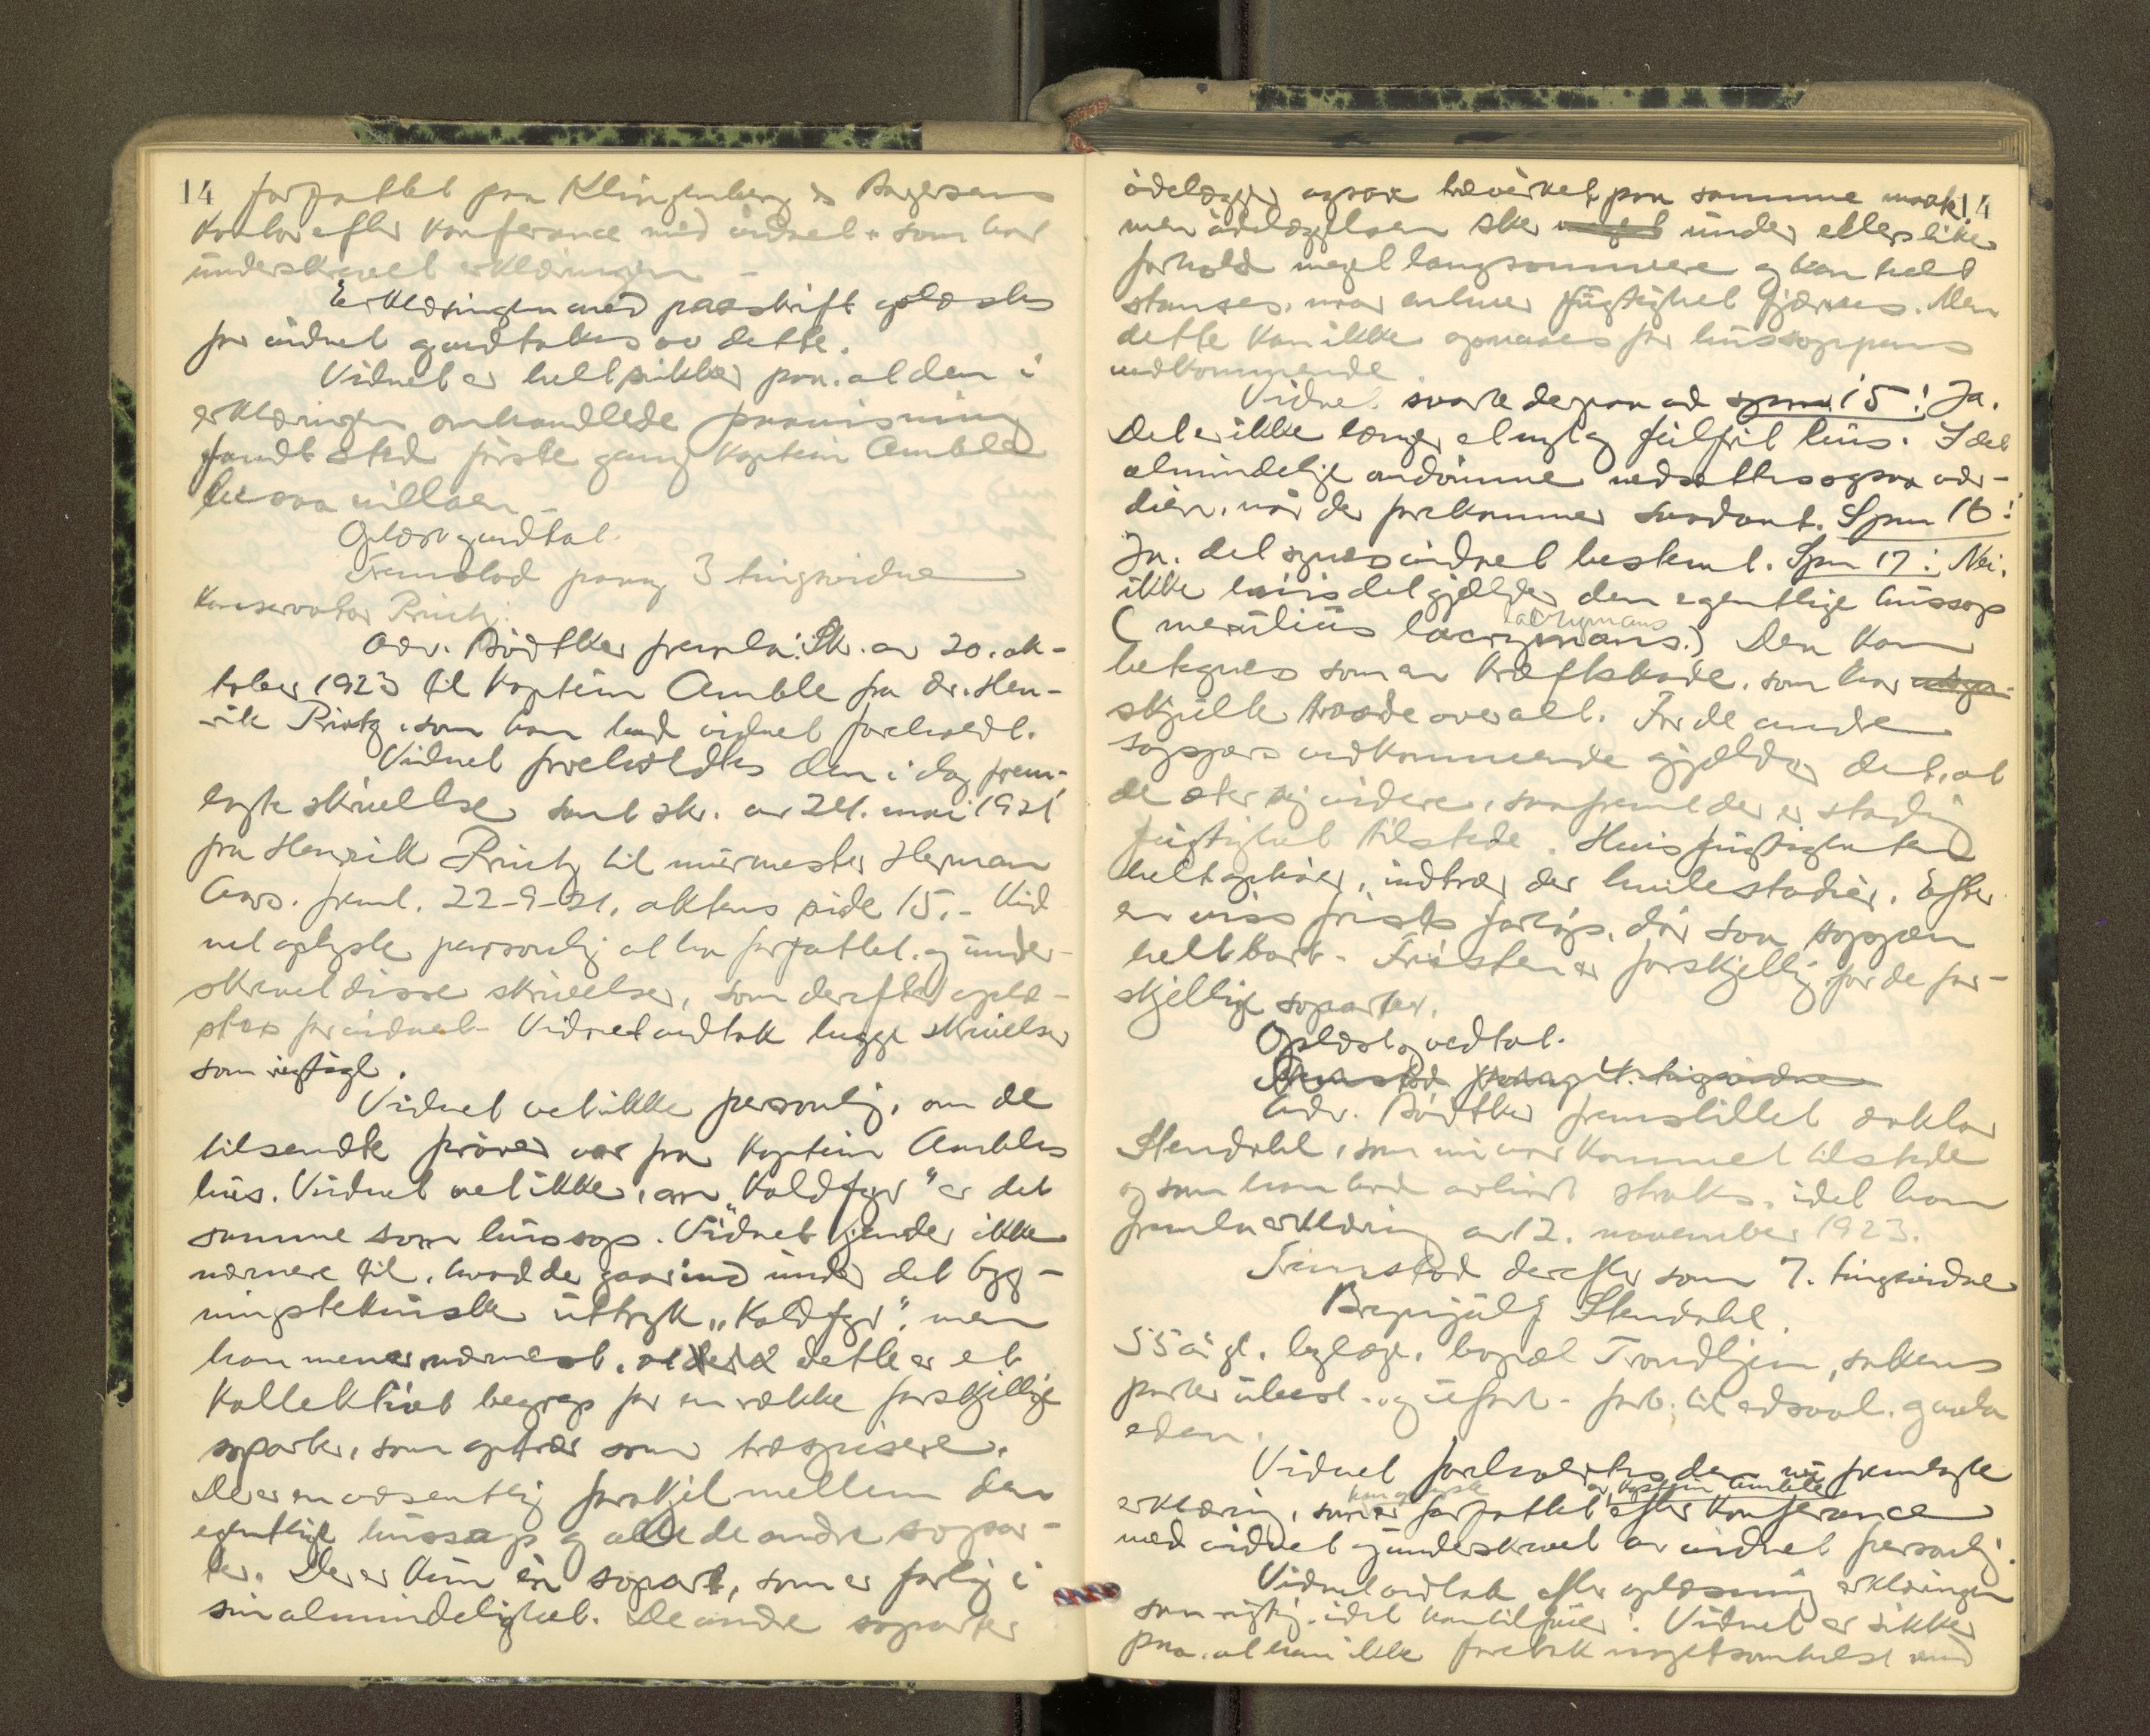 14 forfattet paa Klingenberg &
kontor efter konferance med vidnet som har
underskrevet erklæringen -
Erklæringen med paaskrift oplæstes
for vidnet og vedtokes av dette.
Vidnet er helt sikker paa, at den i
erklæringen omhandlede paavisning
fandt sted første gang Kaptein Amble
besaa villaen -
Oplæst og vedtat.
Fremstod paany 3 tingsvidne
Konservator Printz.
Adv. Bødtker fremla: Sk. av 20. ok-
tober 1923 til Kaptein Amble fra dr. Hen-
rik Printz, som han lod vidnet foreholdt.
Vidnet foreholdtes den i dag frem-
lagte skrivelse samt skr. av 24. mai 1921
fra Henrik Printz til murmester Herman
Aas. freml. 22-9-21, aktens side 15. - Vid
net oplyste personlig at ha forfattet og under-
skrevet disse skrivelser, som derefter oplæ-
stes for vidnet - Vidnet vedtok begge skrivelser
som rigtige.
Vidnet vet ikke personlig, om de
tilsendte prøver var fra Kaptein Ambles
hus. Vidnet vet ikke, om "Koldfyr" er det
samme som hussop. Vidnet kjender ikke
nærmere til, hvad der gaar ind under det byg-
ningstekniske uttryk "Koldfyr", men
han mener nærmest, at dette er et
kollektivt begrep for en række forskjellige
soparter, som optrær som træspisere.
Der er en væsentlig forskjel mellem den
egentlige hussop og alle de andre sopar-
ter. Der er kun én sopart, som er farlig i
sin almindelighet. De andre soparter
ødelægger ogsaa træverket paa samme maate, 14
men ødelæggelsen sker meget under ellers like
forhold meget langsommere og kan helt
stanses, naar enhver fugtighet fjærnes. Men
dette kan ikke opnaaes for hussoppens
vedkommende.
Vidnet svarte derpaa ad spm 15: Ja.
Det er ikke længer et nyt og feilfrit hus. I det
almindelige omdømme nedsættes ogsaa vær-
dien, når der forekommer saadant. Spm 16:
Ja. det synes vidnet bestemt. Spm 17: Nei,
ikke hvis det gjælder den egentlige hussop
lacrymans
(merulius lacrymans.) Den kan
betegnes som en kræftskade, som har
skjulte traade overalt. For de andre
soppers vedkommende gjælder det, at
de æter sig videre, saafremt der er stadig
fugtighet tilstede. Hvis fugtigheten
helt ophører, indtrær der hvilestadier. Efter
en viss frists forløp, dør saa soppen
helt bort - Fristen er forskjellig for de for-
skjellige soparter.
Oplæst og vedtat.
Fremstod paany 4. tingsvidne
Adv. Bødtker fremstillet doktor
Stendahl, som nu var kommet tilstede
og som han lod avhørt straks, idet han
fremla erklæring av 12. november 1923.
Fremstod derefter som 7. tingsvidne
Brynjulf Stendahl.
55 år gl. bylæge, bopæl Trondhjem, sakens
parter ubesl. og usvogr. - forb. til edsavl. og avla
eden.
Vidnet foreholdtes den nu fremlagte
av Kaptein Amble
erklæring, som er forfattet efter konferance
med vidnet og underskrevet av vidnet personlig.
Vidnet vedtok efter oplæsning erklæringen
som rigtig, idet han tilføier: Vidnet er sikker
paa, at han ikke foretok nogetsomhelst med